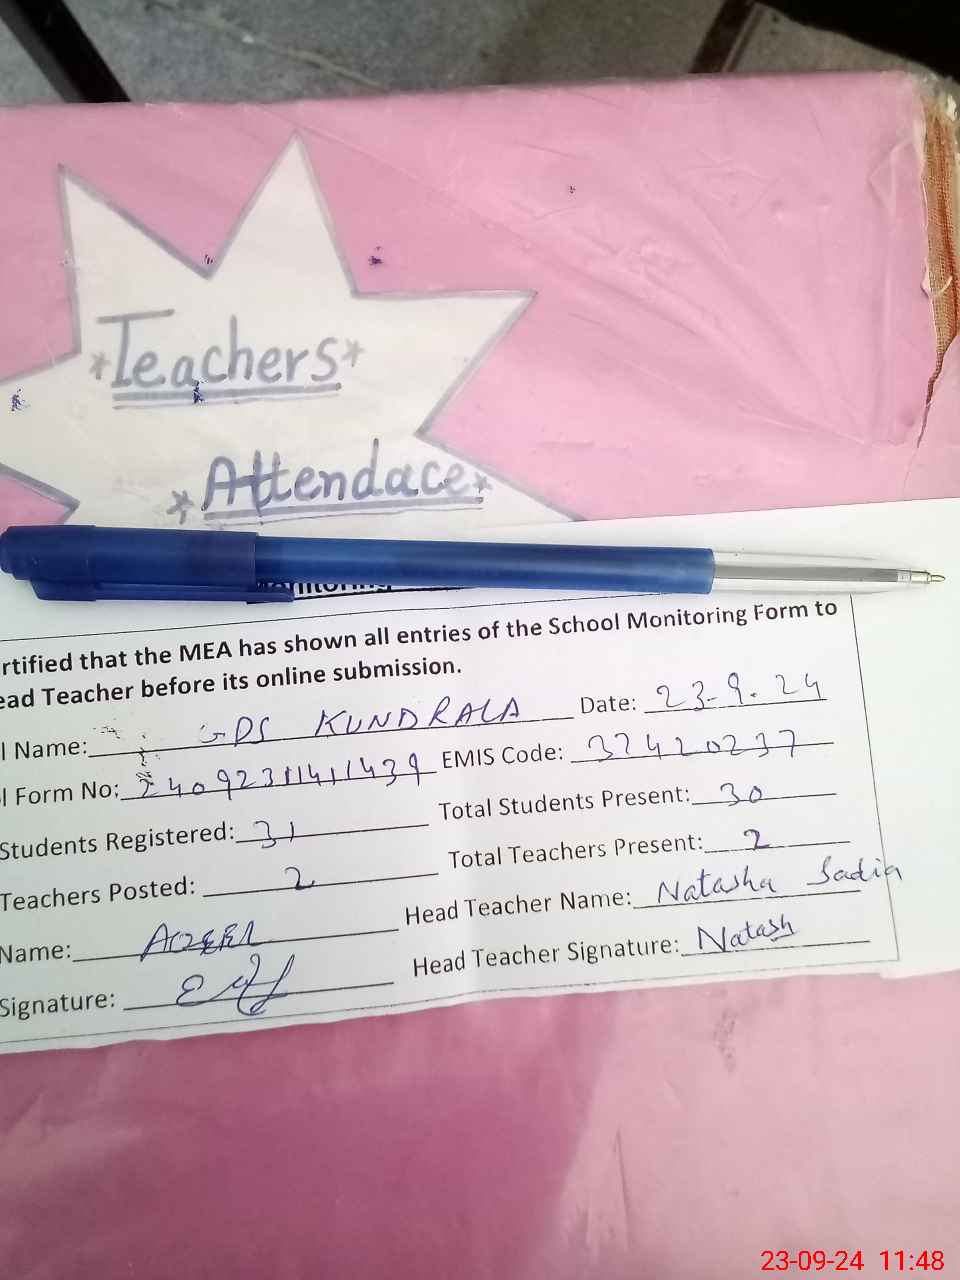 *Teachers*
*Attendace*
rtified that the MEA has shown all entries of the School Monitoring Form to
ead Teacher before its online submission.
l Name: GPS KUNDRALA Date: 23-9.24
l Form No: EMIS Code: 37420237
Students Registered: 31 Total Students Present: 30
Teachers Posted: 2 Total Teachers Present: 2
Name: Head Teacher Name: Natasha Sadia
Signature: Head Teacher Signature: Natash
23-09-24 11:48